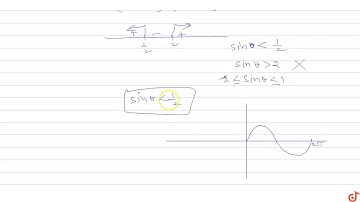 + - +
1/2 2
sinθ < 1/2
sinθ > 2 ✗
-1 ≤ sinθ ≤ 1
sinθ < 1/2
2π